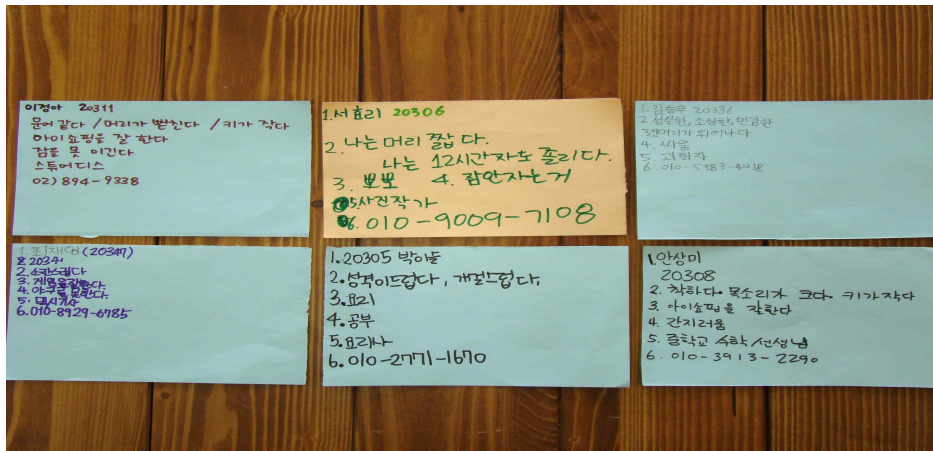 이정아 20311
문어 같다 / 머리가 뻗친다 / 키가 작다
아이쇼핑을 잘 한다
잠을 못 이긴다
스튜어디스
02) 894-9338
1. 서효리 20306
2. 나는 머리 짧다.
나는 12시간자도 졸리다.
3. 뽀뽀 4. 잠안자는거
5. 사진작가
6. 010-9009-7108
1. 김승우 20336
2. 성실한, 소심한, 민감한
4. 싸움
5. 과학자
6. 010-5383-4018
(20347)
2. 소란스럽다
3. 게임을 잘한다.
4. 야구를 못한다.
5. 택시기사
6. 010-8929-6785
1. 20305 박이슬
2. 성격이드럽다, 개걸스럽다,
3. 요리
4. 공부
5. 요리사
6. 010-2771-1670
1. 안상미
20308
2. 착하다. 목소리가 크다. 키가 작다
3. 아이쇼핑을 잘한다
4. 간지러움
5. 중학교 수학/선생님
6. 010-3913-2290